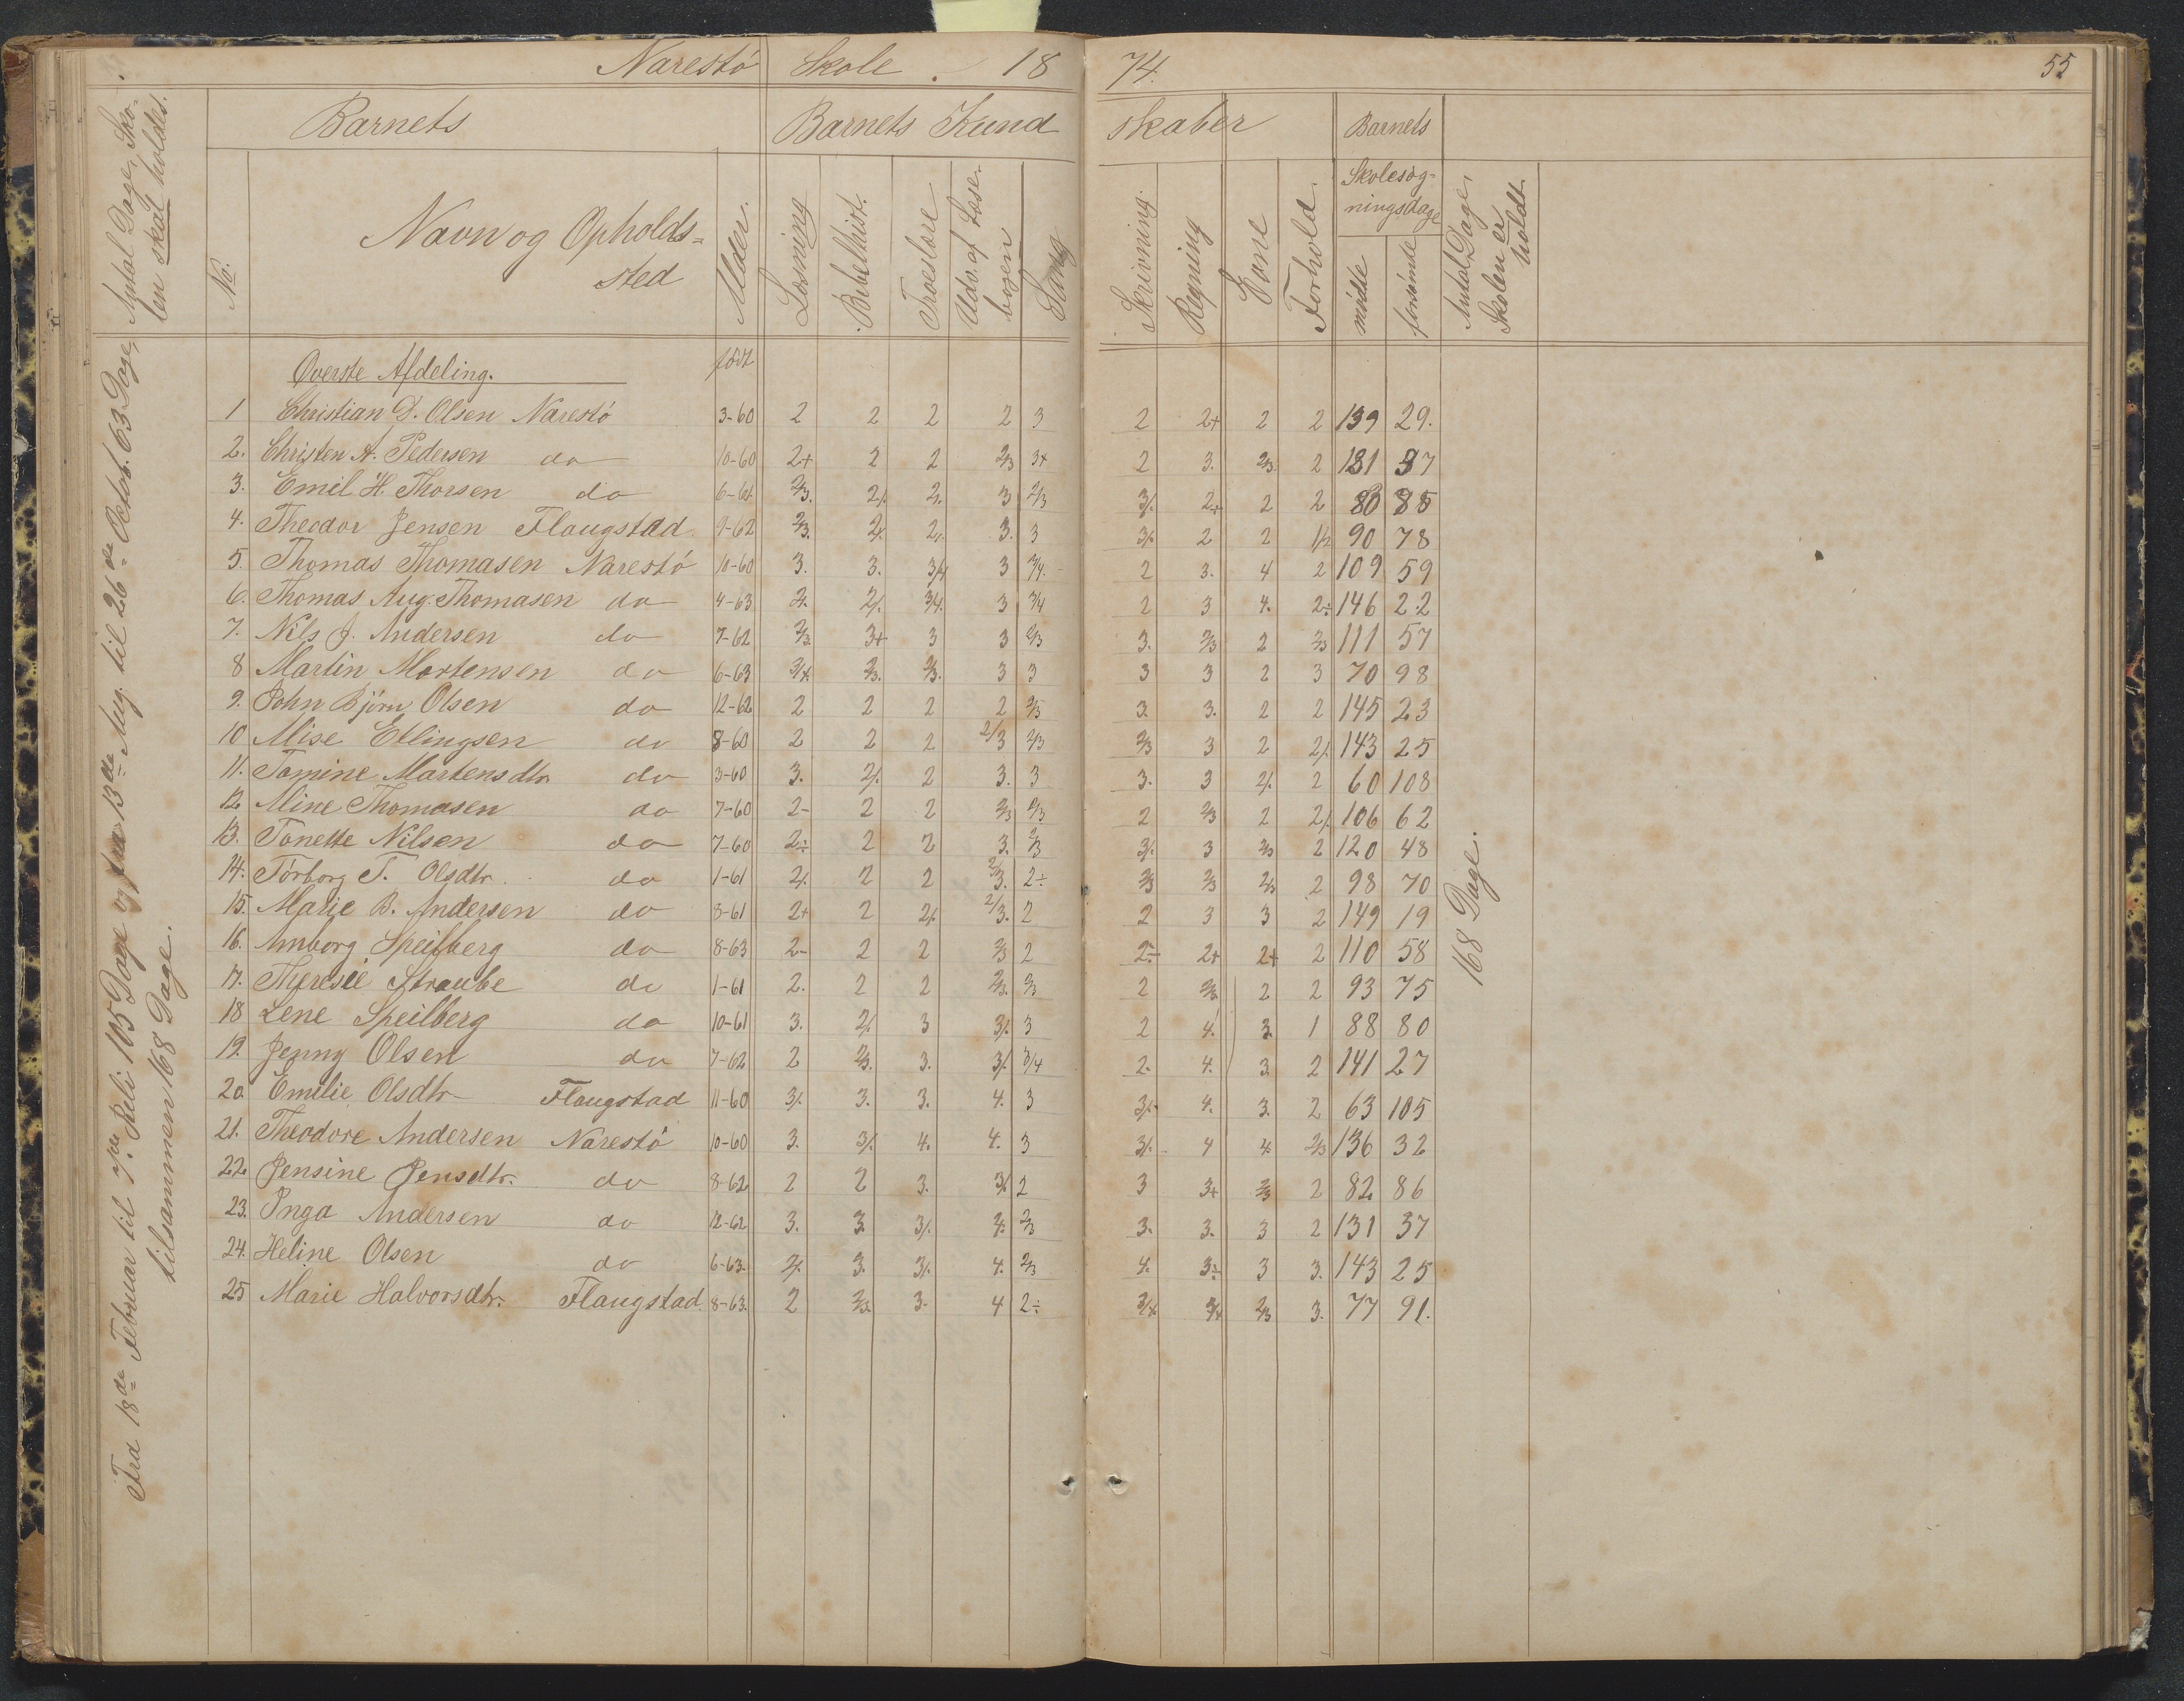 Narestö Skole. 1874.
55
Antal Dage, Skolen skal holdes.
Barnets
Barnets Kundskaber
Barnets
No.
Navn og Opholdssted
Alder.
Læsning
Bibelhist.
Troeslære
Udv. af Læsebogen
Sang
Skrivning.
Regning
Evne
Forhold.
Skolesøgningsdage
mødte
forsömte
Antal Dage, Skolen er holdt.
Fra 18de Februar til 7de Juli 105 Dage og fra 13de Aug. til 26de Octob. 63 Dage,
tilsammen 168 Dage.
Överste Afdeling. född
1 Christian D. Olsen Narestö 3-60 2 2 2 2 3 2 2+ 2 2 139 29.
2. Christen A. Pedersen do 10-60 2+ 2 2 2/3 3+ 2 3. 2/3 2 131 37
3. Emil H. Thorsen do 6-61 2/3. 2/. 2. 3 2/3 3/. 2+ 2 2 80 88
4. Theodor Jensen Flaugstad 9-62 2/3. 2/. 2. 3. 3 3/. 2 2 1/2 90 78
5. Thomas Thomasen Narestö 10-60 3. 3. 3/4 3 3/4. 2 3. 4 2 109 59
6. Thomas Aug. Thomasen do 4-63 2/. 2/. 3/4. 3 3/4 2 3 4. 2÷ 146 22
7. Nils J. Andersen do 7-62 2/3. 3+ 3 3 2/3 3. 2/3 2 2/3 111 57
8 Martin Mortensen do 6-63 3/4. 2/3. 2/3. 3 3 3 3 2 3 70 98
9. John Björn Olsen do 12-62 2 2 2 2 2/3 3. 3. 2 2 145 23
10 Alise Ellingsen do 8-60 2 2 2 2/3 2/3 2/3 3 2 2/. 143 25
11. Tomine Martensdtr. do 3-60 3. 2/. 2 3. 3 3. 3 2/. 2 60 108
12. Aline Thomasen do 7-60 2- 2 2 2/3 2/3 2 2/3 2 2/. 106 62
13. Tonette Nilsen do 7-60 2÷ 2 2 3. 2/3 3/. 3 2/3 2 120 48
14. Torborg T. Olsdtr. do 1-61 2/. 2 2 2/3. 2÷ 2/3 2/3 2/3 2 98 70
15. Marie B. Andersen do 8-61 2+ 2 2/. 2/3. 2 2 3 3 2 149 19
16. Amborg Speilberg do 8-63 2- 2 2 2/3 2 2÷ 2+ 2+ 2 110 58
17. Theresie Straube do 1-61 2. 2 2 2/3. 2/3 2 2/3. 2 2 93 75
18 Lene Speilberg do 10-61 3. 2/. 3 3/. 3 2 4. 3. 1 88 80
19. Jenny Olsen do 7-62 2 2/3. 3. 3/. 3/4 2. 4. 3. 2 141 27
20. Emilie Olsdtr Flaugstad 11-60 3/. 3. 3. 4. 3 3/. 4. 3. 2 63 105
21. Theodore Andersen Narestö 10-60 3. 3/. 4. 4. 3 3/. 4 4. 2/3 136 32
22. Jensine Jensdtr. do 8-62 2 2 3. 3/. 2 3 3+ 2/3 2 82 86
23. Inga Andersen do 12-62 3. 3. 3/. 4. 2/3 3. 3. 3 2 131 37
24. Heline Olsen do 6-63. 2/. 3. 3/. 4. 2/3 4. 3÷ 3 3. 143 25
25 Marie Halvorsdtr. Flaugstad 8-63. 2 2/3. 3. 4 2÷ 3/4. 3/4 2/3 3. 77 91.
168 Dage.